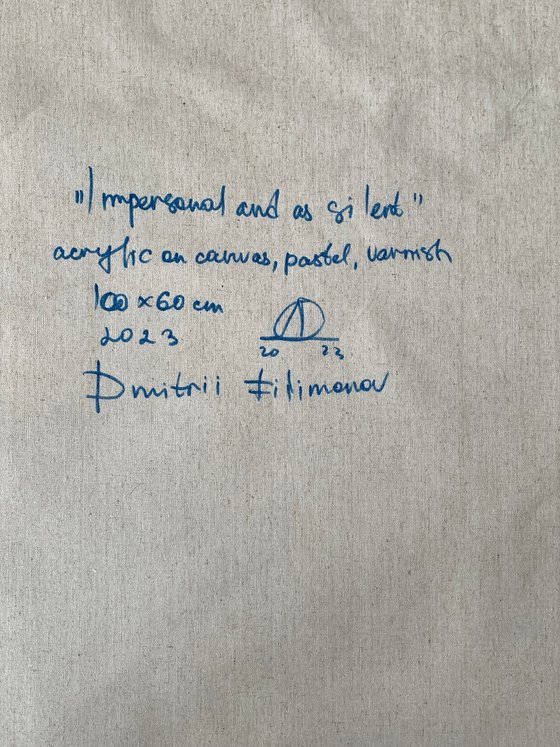 "Impersonal and as silent"
acrylic on canvas, pastel, varnish
100 x 60 cm
2023
20 23
Dmitrii Filimonov